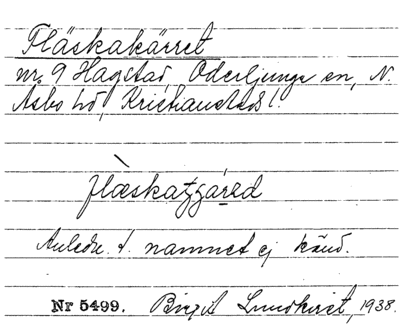 Fläskakärret
nr 9 Hagstad, Oderljunga sn, N.
Åsbo hd, Kristianstads l.
flæskatʒárəd
Anledn. t. namnet ej känd.
Nr 5499. Birgit Lundkvist, 1938.